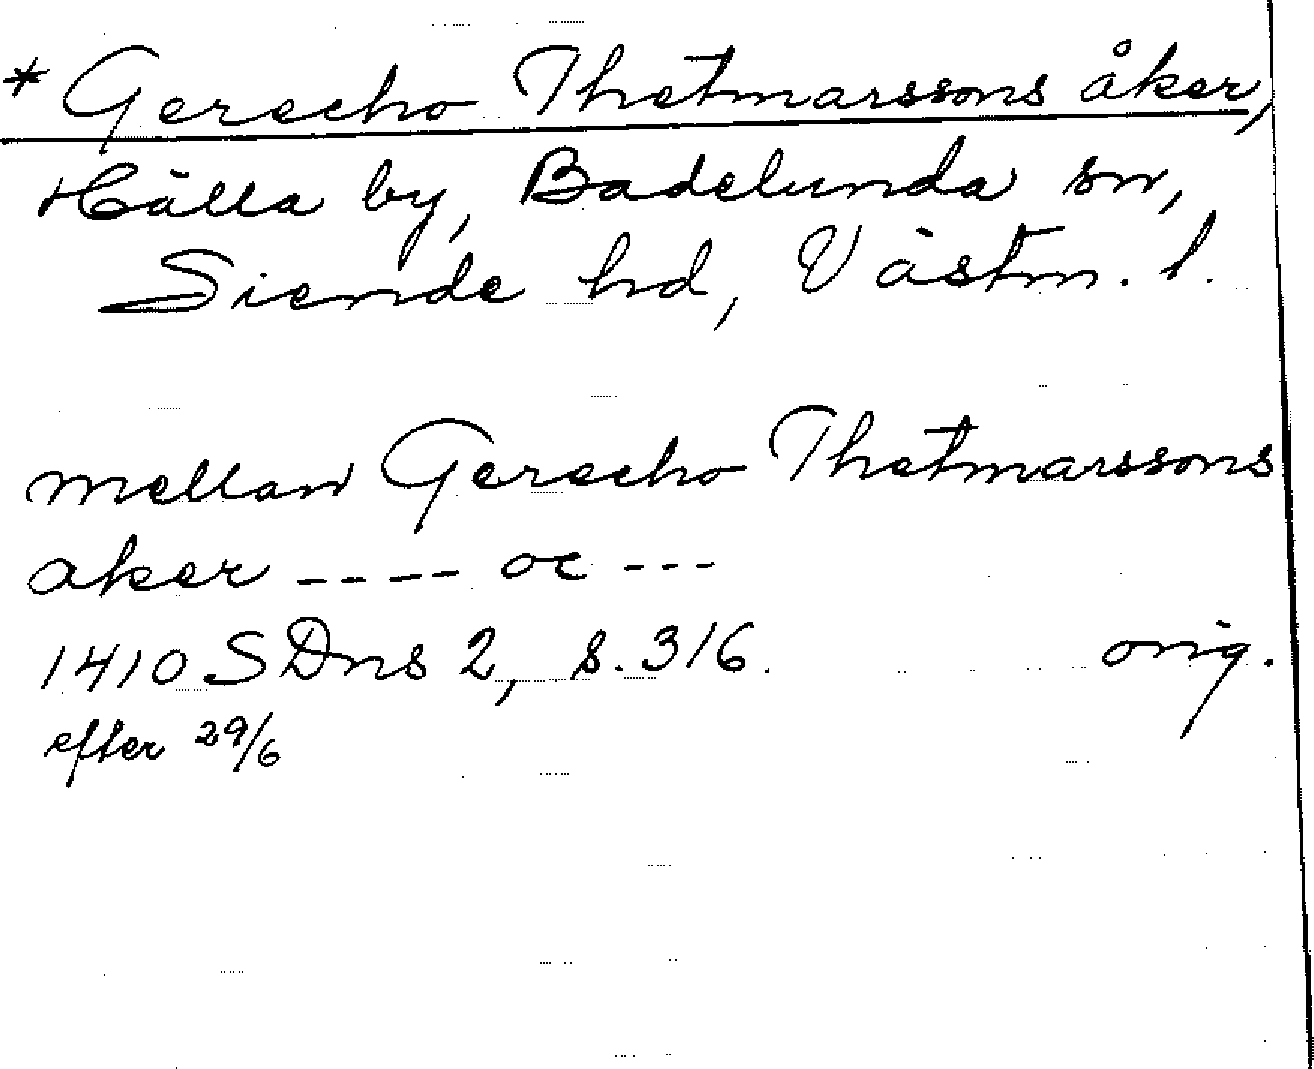 * Gerecho Thetmarssons åker,
Hälla by, Badelunda sn,
Siende hd, Västm. l.
mellan Gerecho Thetmarssons
aker ---- oc ---
1410 SDns 2, s. 316. orig.
efter 29/6